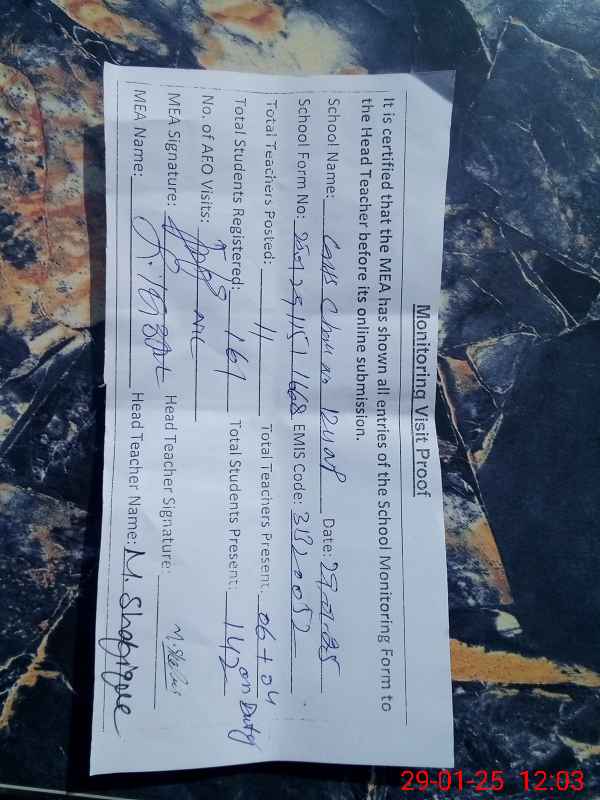 Monitoring Visit Proof
It is certified that the MEA has shown all entries of the School Monitoring Form to
the Head Teacher before its online submission.
School Name: Date: 29-01-25
School Form No: EMIS Code: 31320052
Total Teachers Posted: 11 Total Teachers Present: 06 + 04 on Duty
Total Students Registered: 161 Total Students Present: 142
No. of AEO Visits: Nil
MEA Signature: Head Teacher Signature:
MEA Name: Head Teacher Name: M. Shafique
29-01-25 12:03